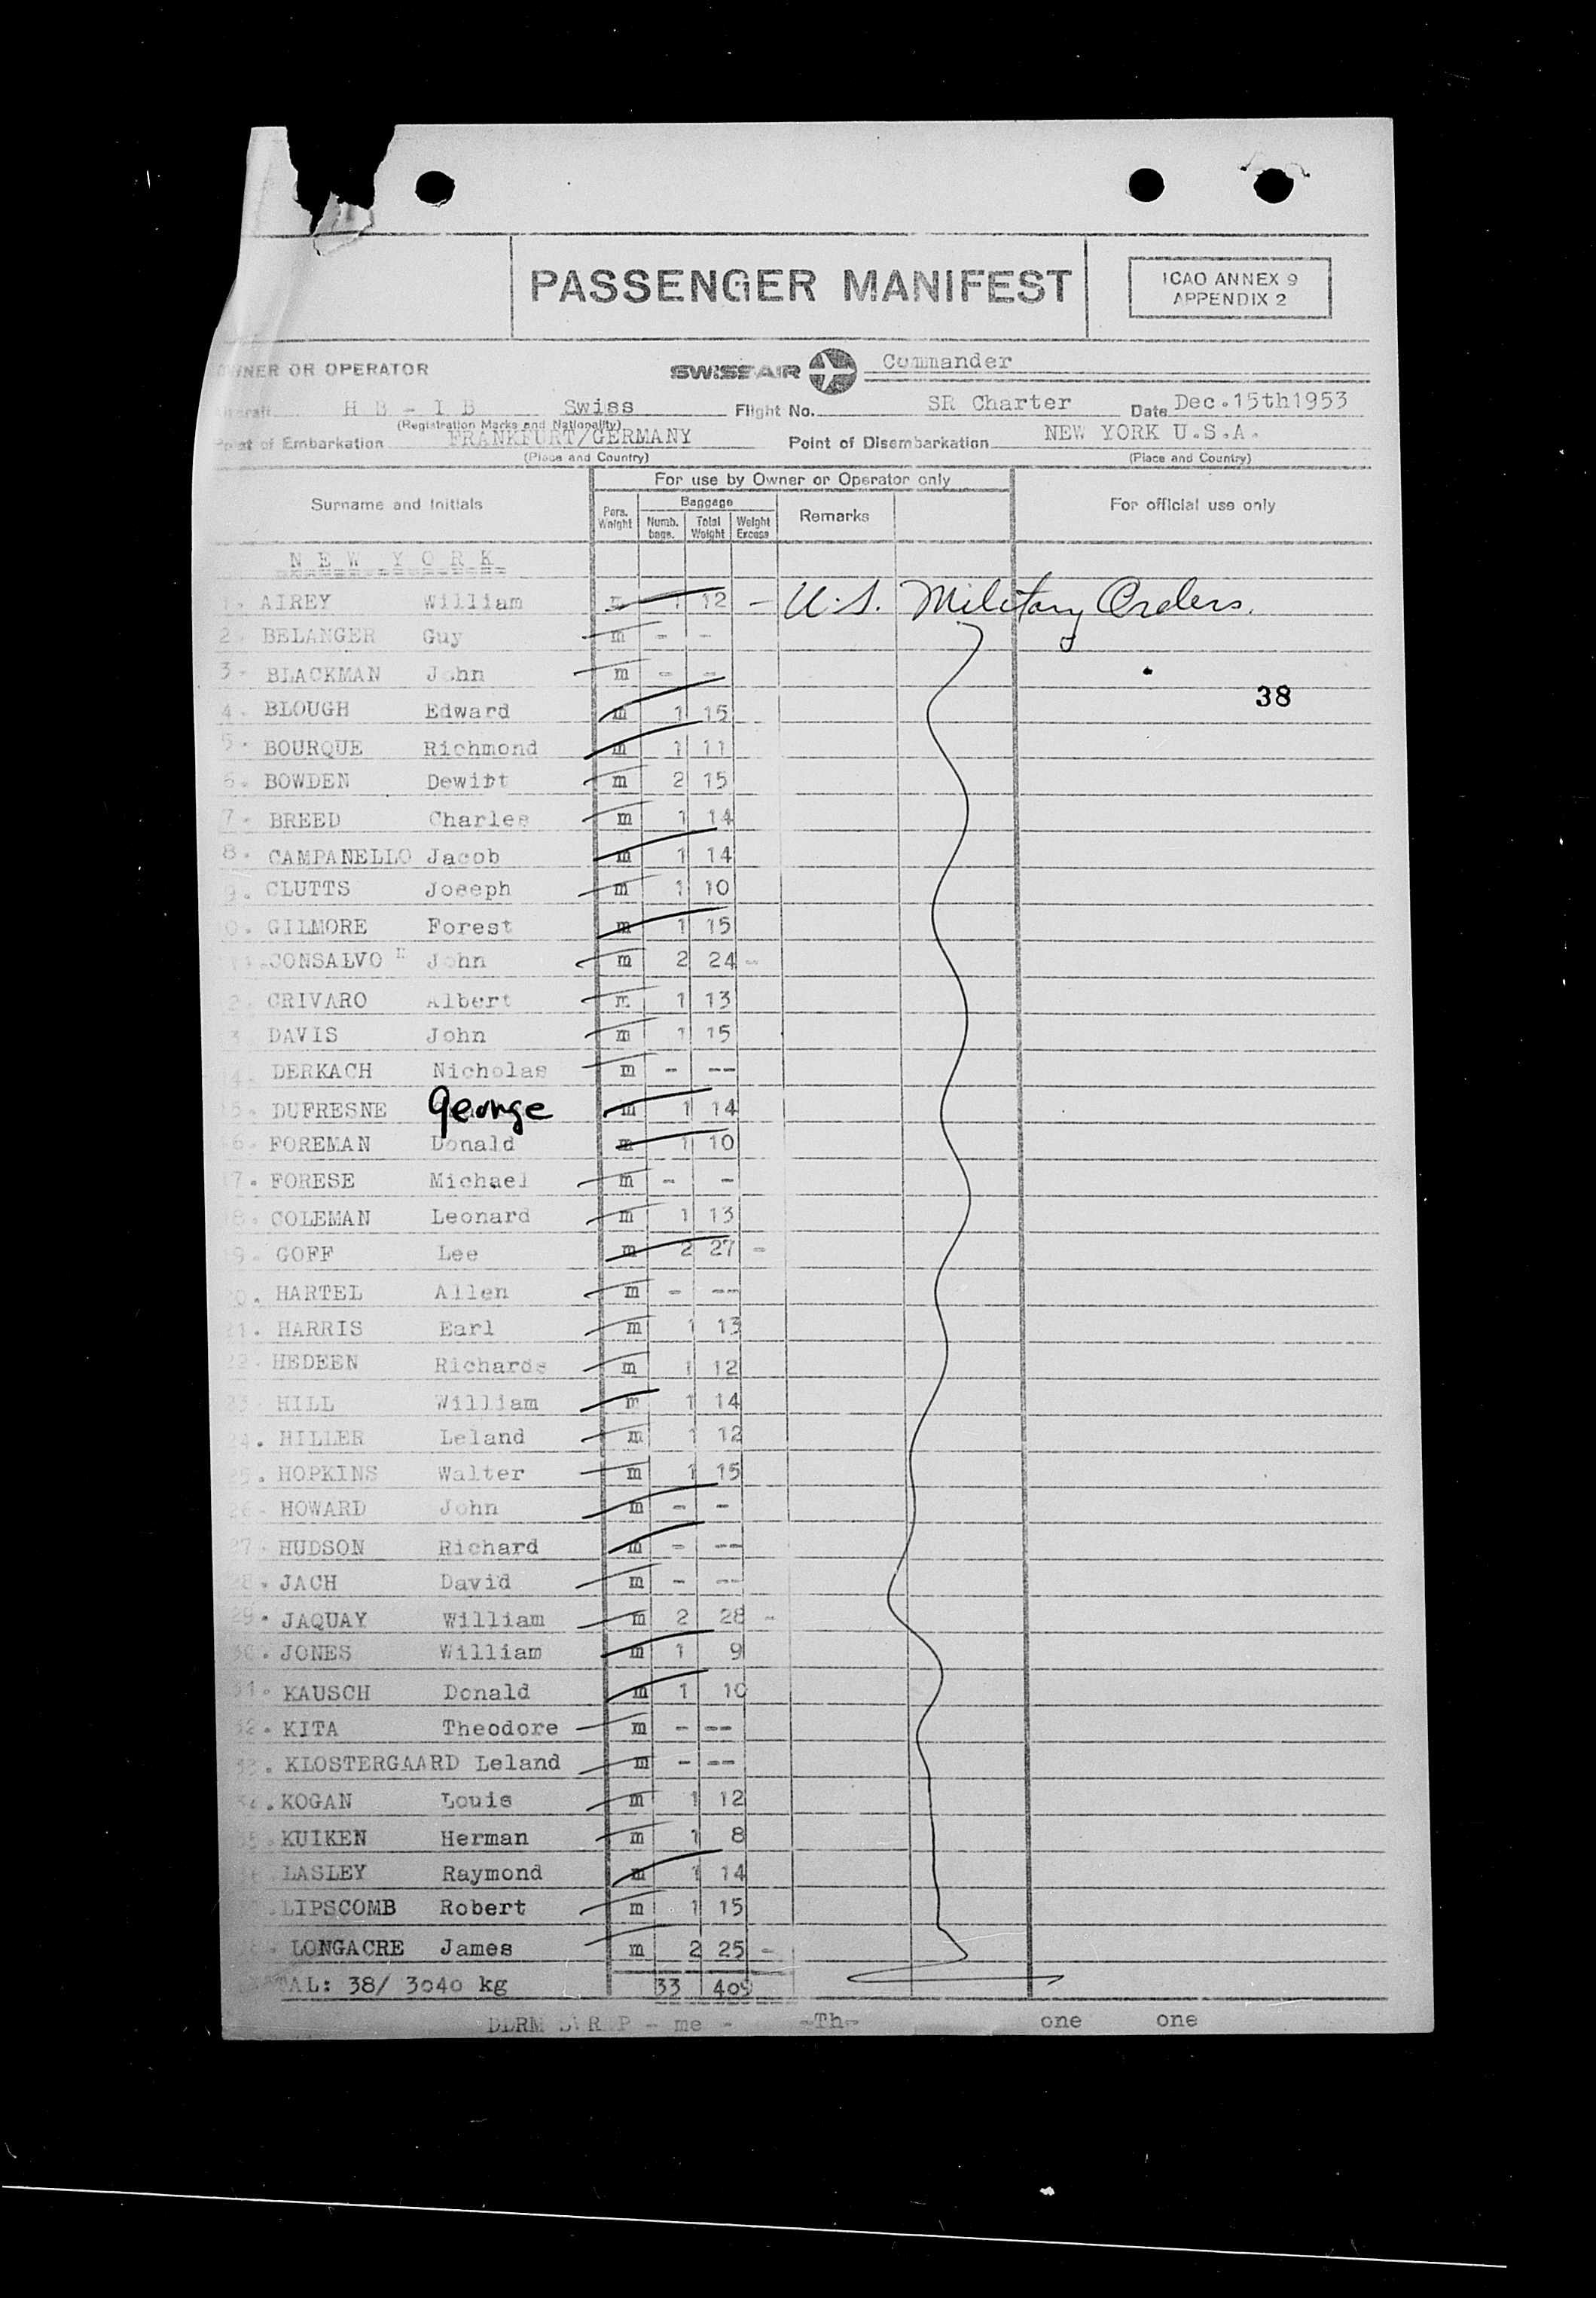 PASSENGER MANIFEST
ICAO ANNEX 9
APPENDIX 2
OWNER OR OPERATOR SWISSAIR Commander
Aircraft H B - I B Swiss Flight No. SR Charter Date Dec.15th1953
(Registration Marks and Nationality)
Point of Embarkation FRANKFURT/GERMANY Point of Disembarkation NEW YORK U.S.A.
(Place and Country) (Place and Country)
For use by Owner or Operator only
Surname and Initials Pers. Weight Baggage Numb. bags. Total Weight Weight Excess Remarks For official use only
N E W Y O R K
1. AIREY William m 1 12 - U.S. Military Orders.
2. BELANGER Guy m - -
3. BLACKMAN John m - -
38
4. BLOUGH Edward m 1 15
5. BOURQUE Richmond m 1 11
6. BOWDEN Dewitt m 2 15
7. BREED Charles m 1 14
8. CAMPANELLO Jacob m 1 14
9. CLUTTS Joseph m 1 10
10. GILMORE Forest m 1 15
11. CONSALVO John m 2 24 -
12. CRIVARO Albert m 1 13
13. DAVIS John m 1 15
14. DERKACH Nicholas m - --
15. DUFRESNE George m 1 14
16. FOREMAN Donald m 1 10
17. FORESE Michael m - -
18. COLEMAN Leonard m 1 13
19. GOFF Lee m 2 27 -
20. HARTEL Allen m - --
21. HARRIS Earl m 1 13
22. HEDEEN Richards m 1 12
23. HILL William m 1 14
24. HILLER Leland m 1 12
25. HOPKINS Walter m 1 15
26. HOWARD John m - -
27. HUDSON Richard m - --
28. JACH David m - --
29. JAQUAY William m 2 28 -
30. JONES William m 1 9
31. KAUSCH Donald m 1 10
32. KITA Theodore m - --
33. KLOSTERGAARD Leland m - --
34. KOGAN Louis m 1 12
35. KUIKEN Herman m 1 8
36. LASLEY Raymond m 1 14
LIPSCOMB Robert m 1 15
38. LONGACRE James m 2 25 -
TOTAL: 38/ 3040 kg 33 409
- me - -Th- one one